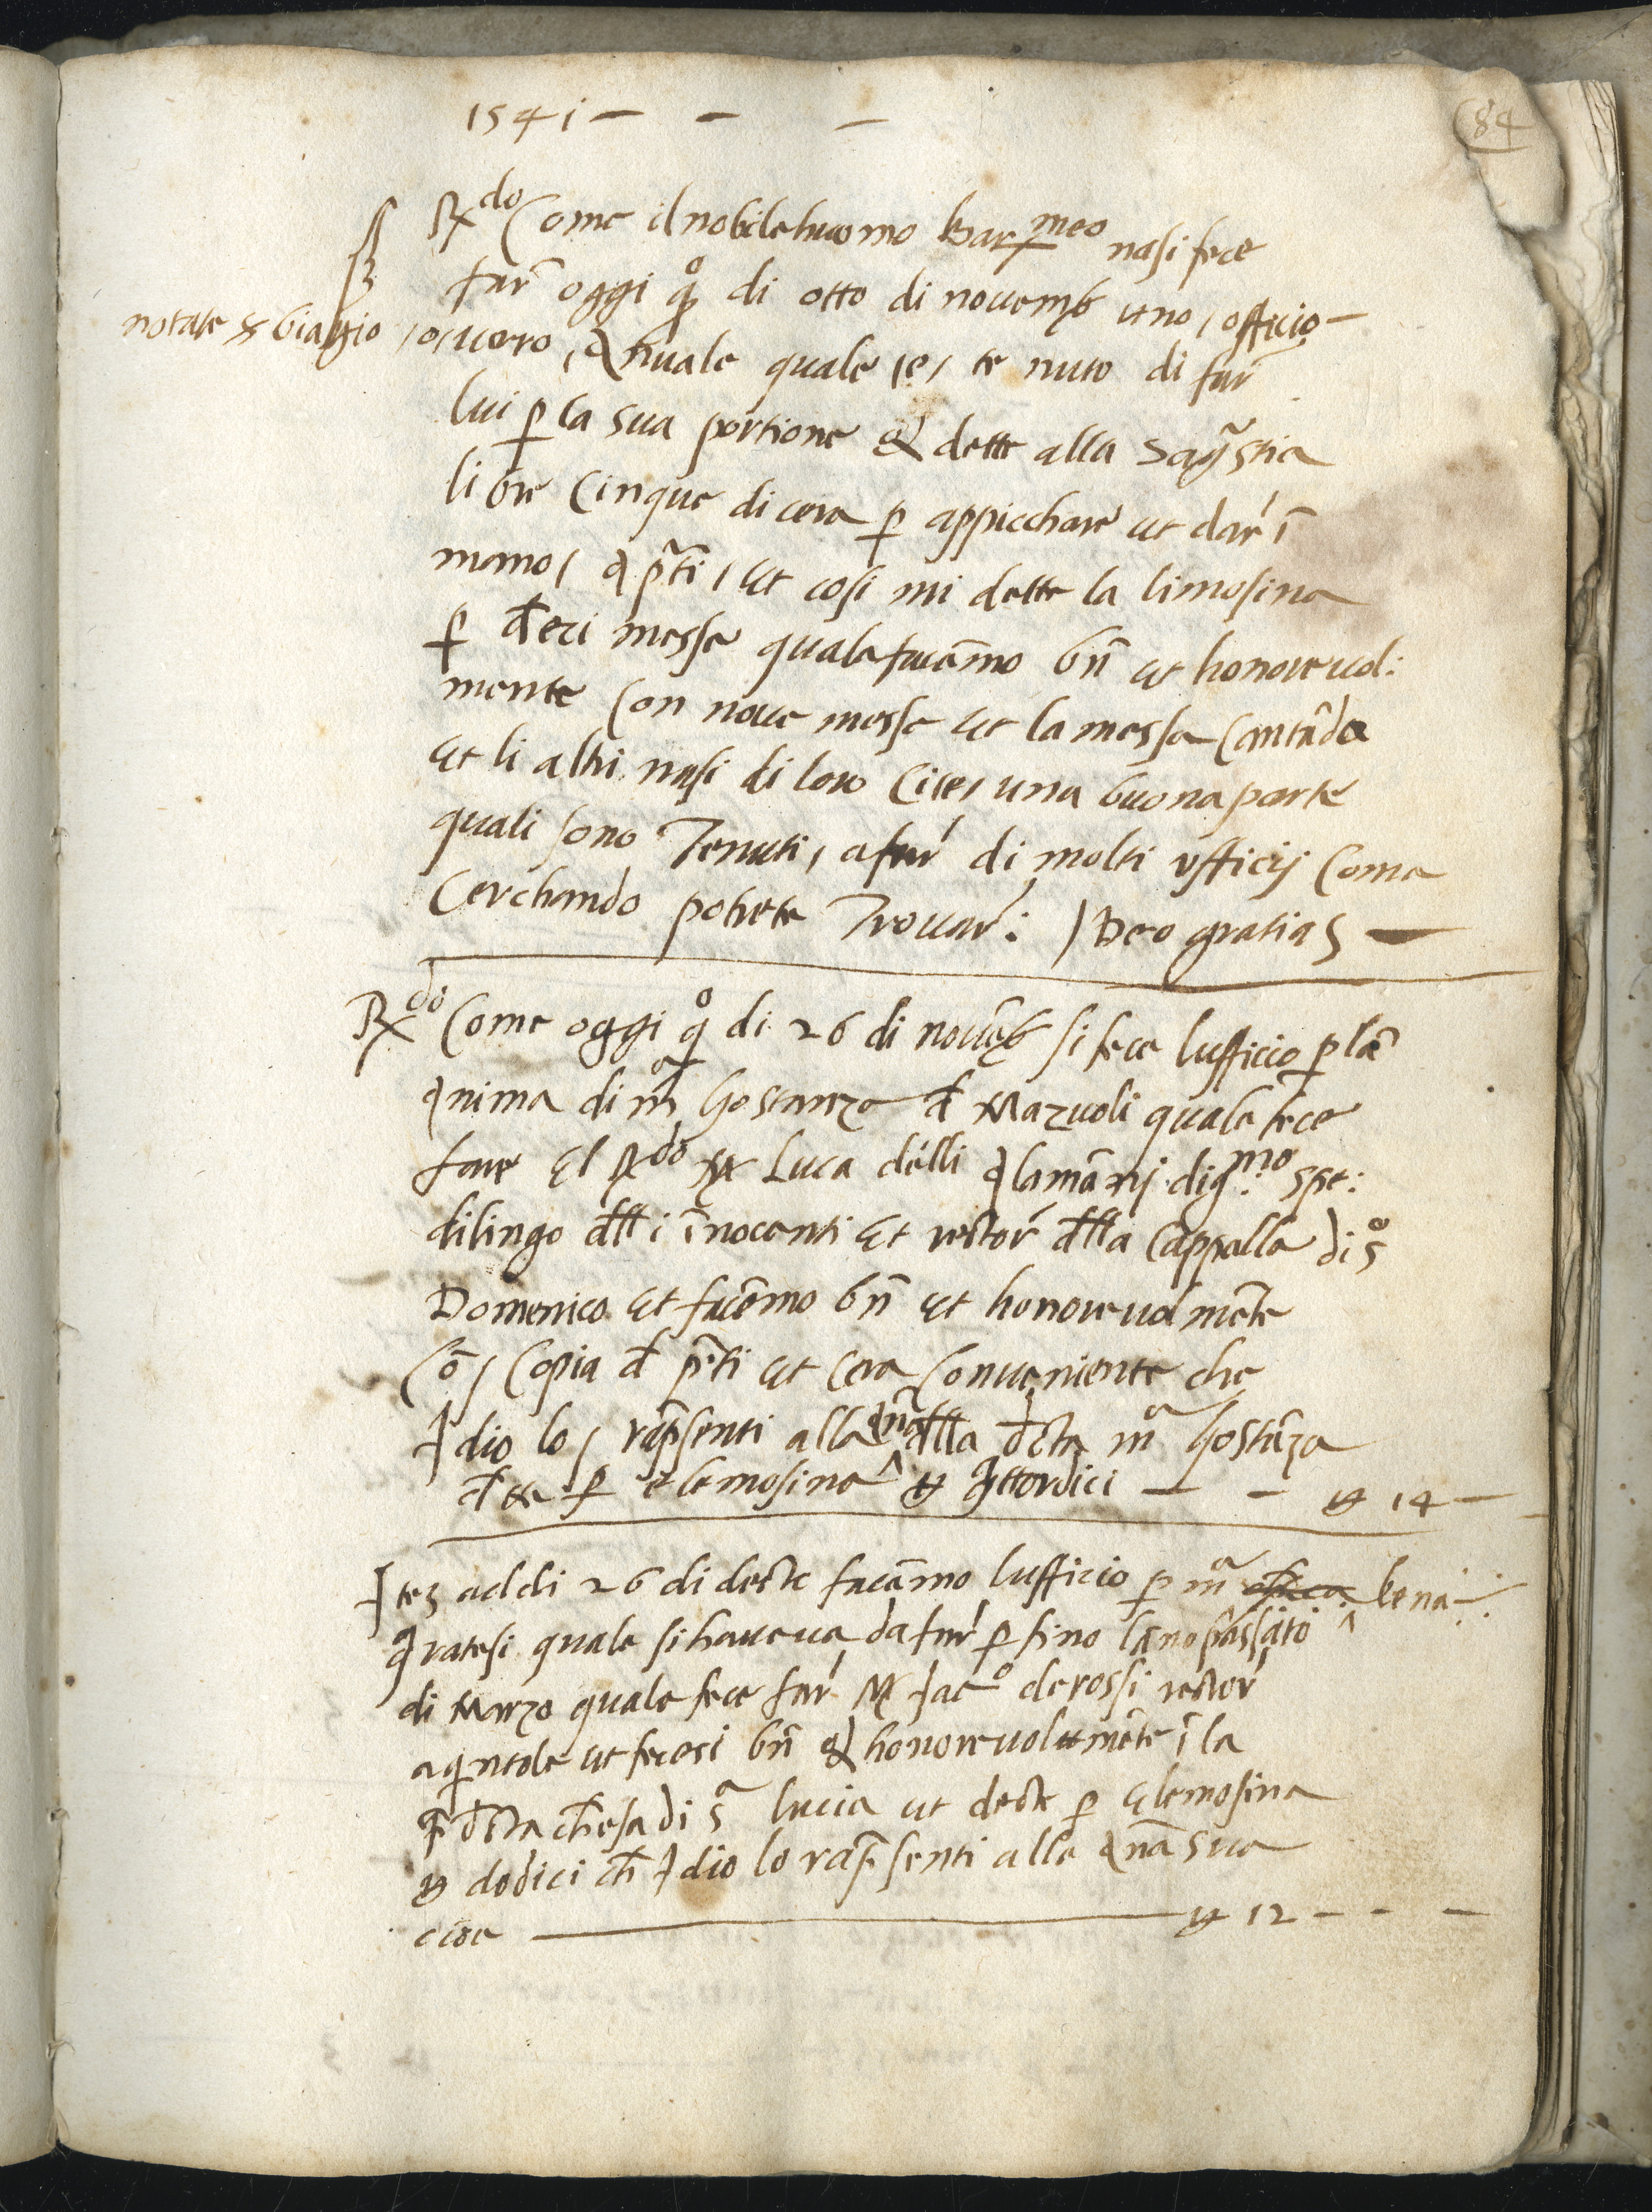 1541 — — —
84
R.do Come il nobile huomo Bar.meo nasi fece
far̄ oggi q.o di otto di novemb uno, officio —
notate s.r biagio
, o, uero, Annuale quale , e, te nuto di far̄
lui p la sua portione & dette alla Sag.stia
libre Cinque di cera p appicchare et dar' ī
mano, a p̄ti, et cosi mi dette la limosina
p dieci messe quale facēmo bn̄ et honoreuol:
mente Con noue messe et la messa Cantāda
et li altri nasi di loro Cire, una buona parte
quali sono Tenuti, a far' di molti ufficij Come
Cerchando potrete Trouar': / Deo gratias —
R.do Come oggi q.o di 26 di nouēb si fece lufficio p lā
Anima di m.a Gostanza d Mazuoli quale fece
fare El R.do ser Luca delli Alamānj dig.mo spe:
dilingo dlli īnocenti Et rector' dlla Cappella di s.o
Domenico et facēmo bn̄ et honoreuol mēte
Cō, Copia d p̄ti et Cera Conueniente che
Idio lo, rapp̄senti alla āna dlla dcta m.a Gostāza
dte p elemosina ₤ Quttordici — — ₤ 14 —
Itē addi 26 di decte facēmo lufficio p m.a lena
Pratesi quale si haueua da far' p fino lāno passato
di Marzo quale fece far' M. Jac.o de rossi rector'
a quntole et fecesi bn̄ & honoreuolmēte ī la
p̄dcta chiesa di s.a lucia et decte p Elemosina
₤ dodici ch̄ Idio lo rapp̄senti alla Anā sua
cioe — ₤ 12 - - —